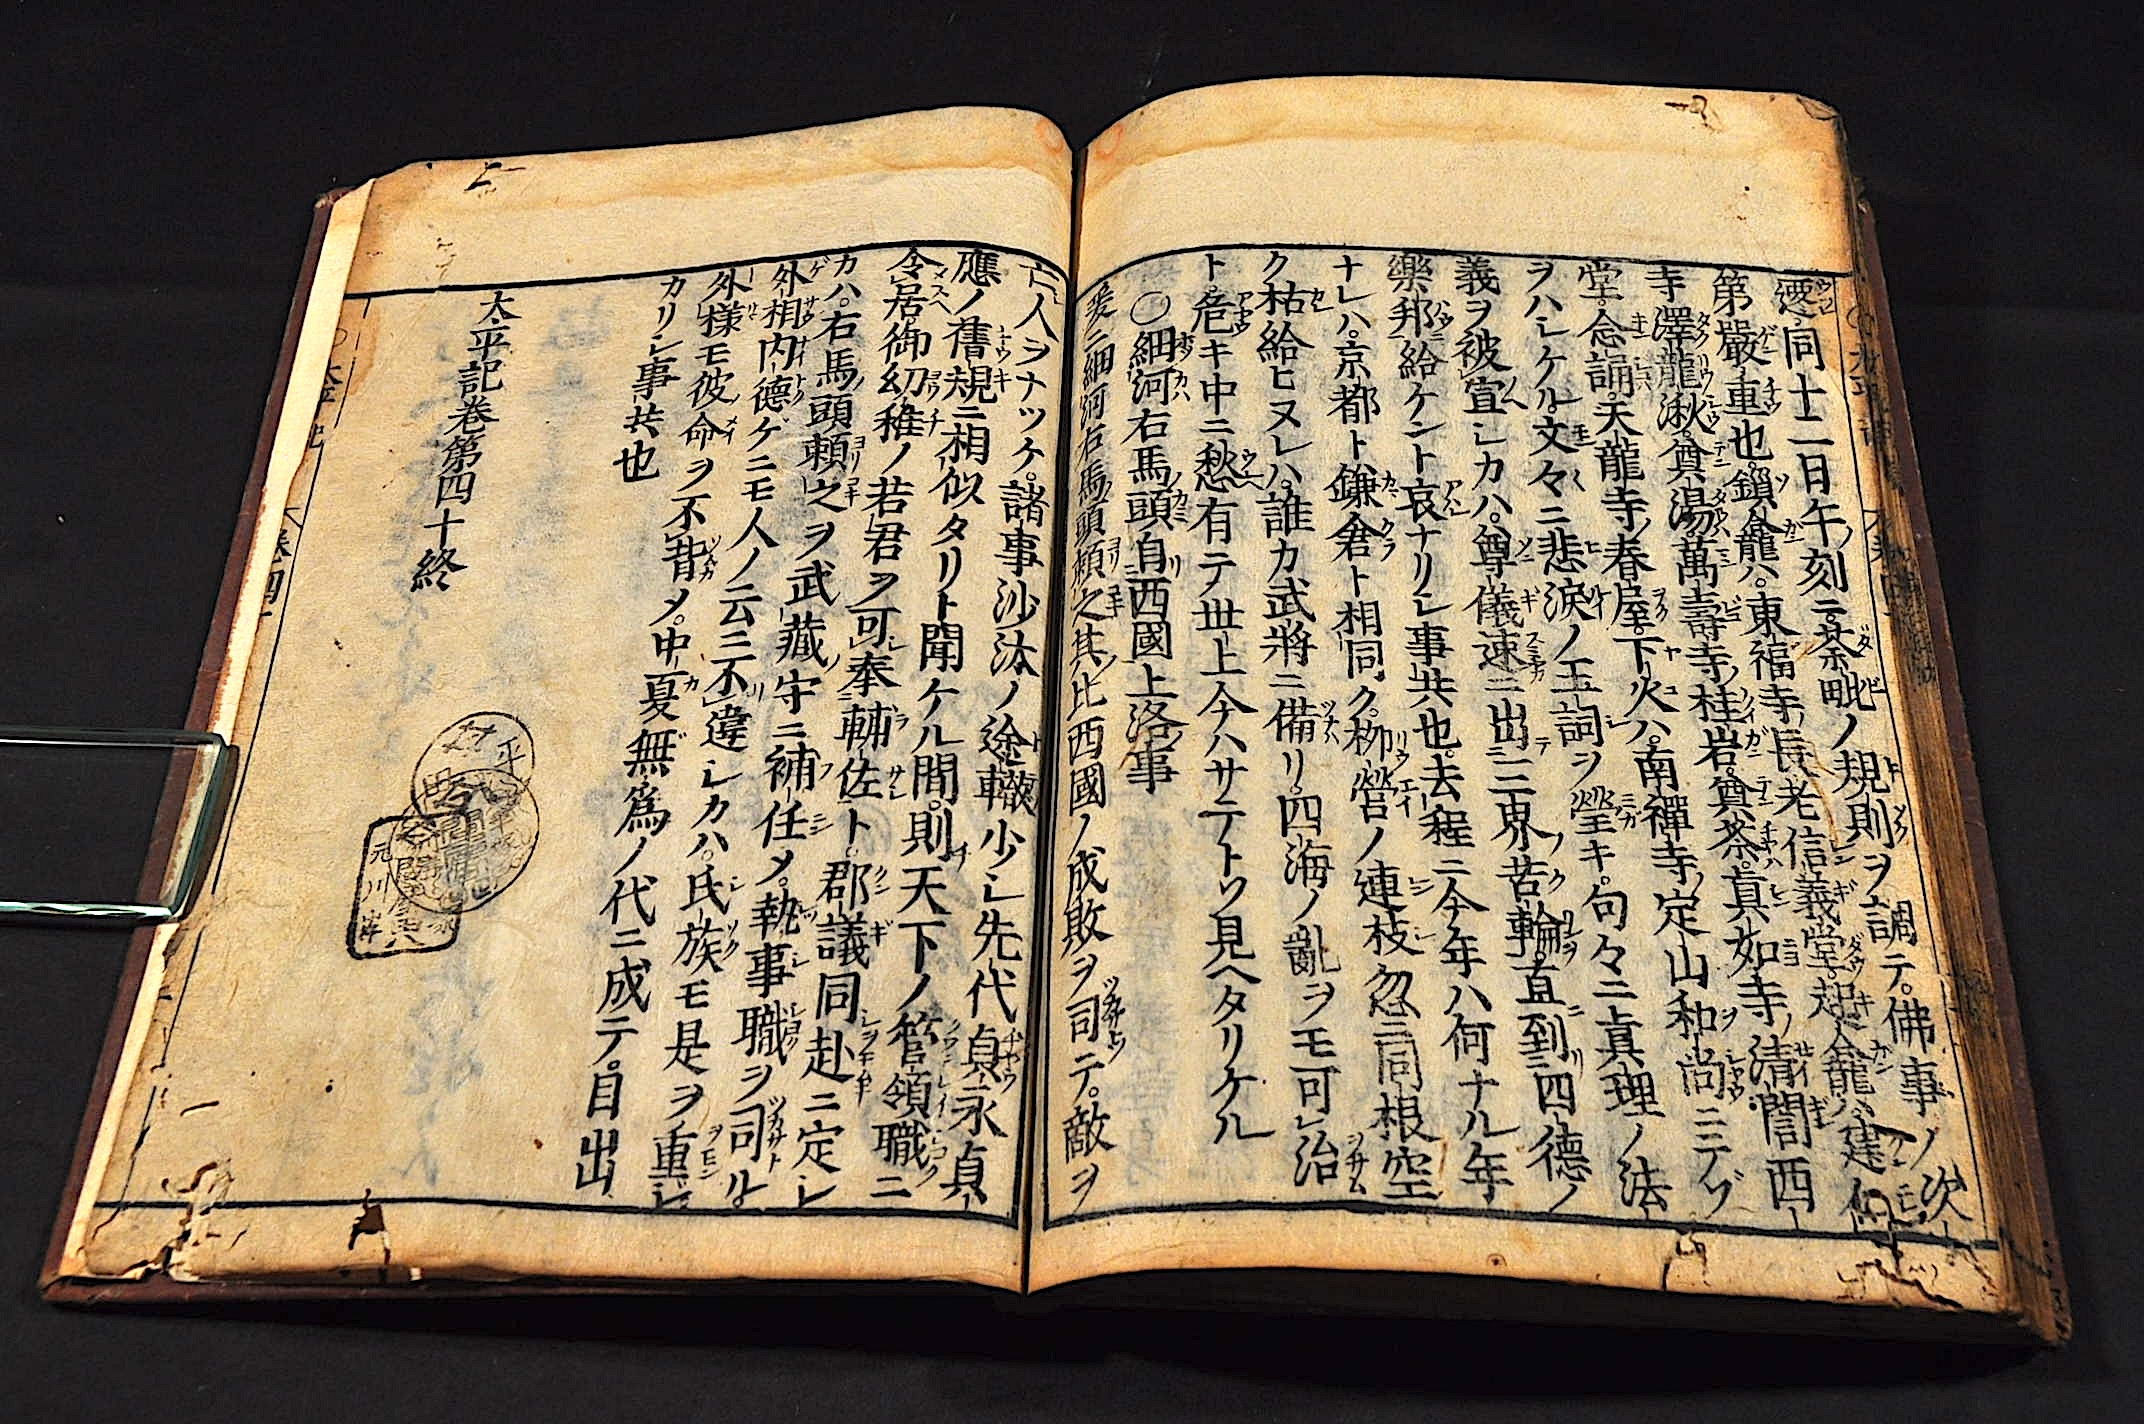 遷同十二日午ノ刻ニ荼毗ノ規則ヲ調テ。佛事ノ次
第嚴重也。鎖龕ハ。東福寺ノ長老信義堂。起龕ハ。建仁
寺澤龍湫。奠湯。萬壽寺ノ桂岩。奠茶。真如寺ノ清誾西
堂。念誦。天龍寺ノ春屋。下火ハ。南禪寺ノ定山和尚ニテゾ
ヲハシケル。文々ニ悲涙ノ玉詞ヲ瑩キ。句々ニ真理ノ法
義ヲ被宣シカハ。尊儀速ニ出三界苦輪。直到四德ノ
樂邦給ケント哀ナリシ事共也。去程ニ今年ハ何ナル年
ナレハ。京都ト鎌倉ト相同ク。柳營ノ連枝忽ニ同根空
ク枯給ヒヌレハ。誰カ武將ニ備リ。四海ノ亂ヲモ可レ治
ト。危キ中ニ愁有テ世上今ハサテトソ見ヘタリケル
〇細河右馬頭自西國上洛事
爰ニ細河右馬頭頼之其比西國ノ成敗ヲ司テ。敵ヲ
亡人ヲナツケ。諸事沙汰ノ途轍少シ先代貞永貞
應ノ舊規ニ相似タリト聞ケル間。則天下ノ管領職ニ
令居。御幼稚ノ若君ヲ可奉輔佐ト。郡議同赴ニ定シ
カハ。右馬頭頼之ヲ武藏守ニ補任メ。執事職ヲ司ル。
外相内德ゲニモ人ノ云ニ不違シカハ。氏族モ是ヲ重シ
外様モ彼命ヲ不背メ。中夏無爲ノ代ニ成テ。目出
カリシ事共也
太平記卷第四十終